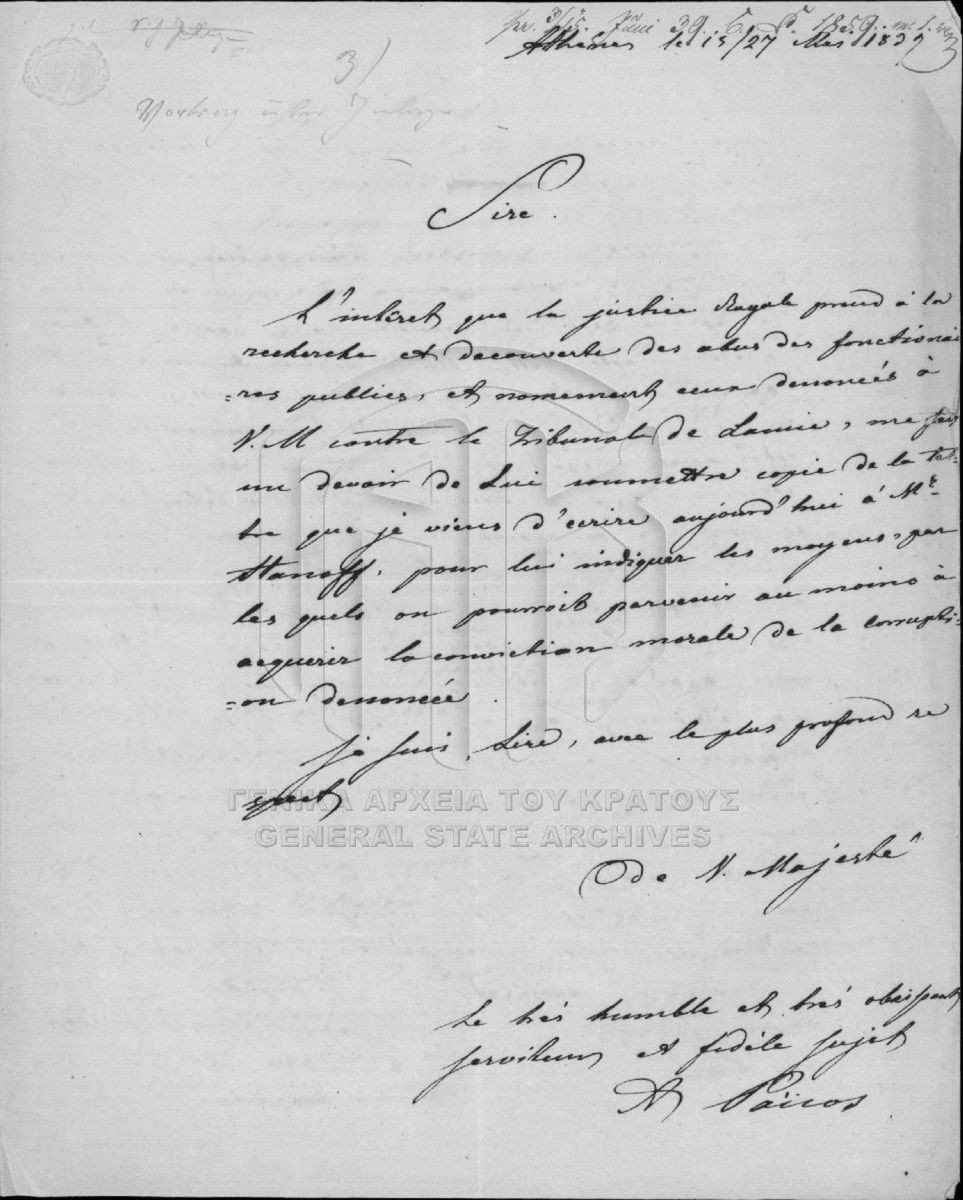 3/
Athènes le 15/27 Mai 1839
Sire.
L'intêret que la justice Royale prend à la
recherche et decouverte des abus des fonctionai
=res publics, et nomement ceux denoncés à
V. M contre le Tribunal de Lamie, me fais
un devoir de Lui soumettre copie de la let-
tre que je viens d'ecrire aujourd'hui à Mr.
pour lui indiquer les moyens, par
les quels on pourroit parvenir au moins à
acquerir la conviction morale de la corrupti-
=on denoncée.
Je suis, Sire, avec le plus profond re
spect
ΓΕΝΙΚΑ ΑΡΧΕΙΑ ΤΟΥ ΚΡΑΤΟΥΣ
GENERAL STATE ARCHIVES
De V. Majesté
Le trés humble et trés obeissant
serviteur et fidèle sujet
A Païcos